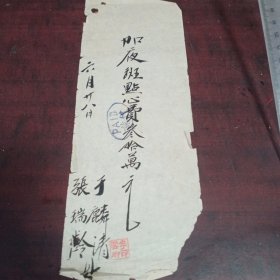 加夜班點心費叁拾萬元
六月廿八日
于麟清
張瑞齡
PAID